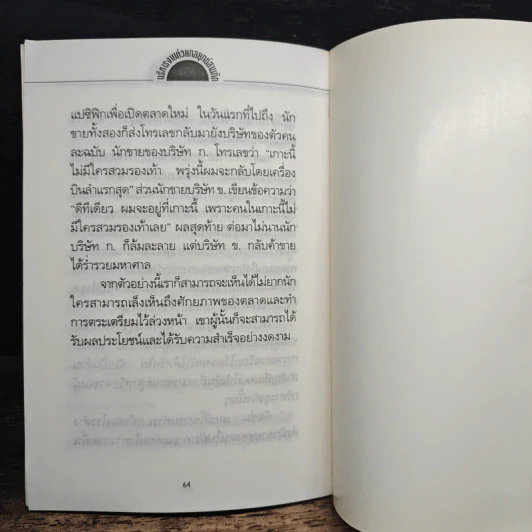 บริหารงานด้วยกลยุทธ์อมตะ
แปซิฟิกเพื่อเปิดตลาดใหม่ ในวันแรกที่ไปถึง นัก
ขายทั้งสองก็ส่งโทรเลขกลับมายังบริษัทของตัวคน
ละฉบับ นักขายของบริษัท ก. โทรเลขว่า "เกาะนี้
ไม่มีใครสวมรองเท้า พรุ่งนี้ผมจะกลับโดยเครื่อง
บินลำแรกสุด" ส่วนนักขายบริษัท ข. เขียนข้อความว่า
"ดีทีเดียว ผมจะอยู่ที่เกาะนี้ เพราะคนในเกาะนี้ไม่
มีใครสวมรองเท้าเลย" ผลสุดท้าย ต่อมาไม่นานนัก
บริษัท ก. ก็ล้มละลาย แต่บริษัท ข. กลับค้าขาย
ได้ร่ำรวยมหาศาล
จากตัวอย่างนี้เราก็สามารถจะเห็นได้ไม่ยากนัก
ใครสามารถเล็งเห็นถึงศักยภาพของตลาดและทำ
การตระเตรียมไว้ล่วงหน้า เขาผู้นั้นก็จะสามารถได้
รับผลประโยชน์และได้รับความสำเร็จอย่างงดงาม
64